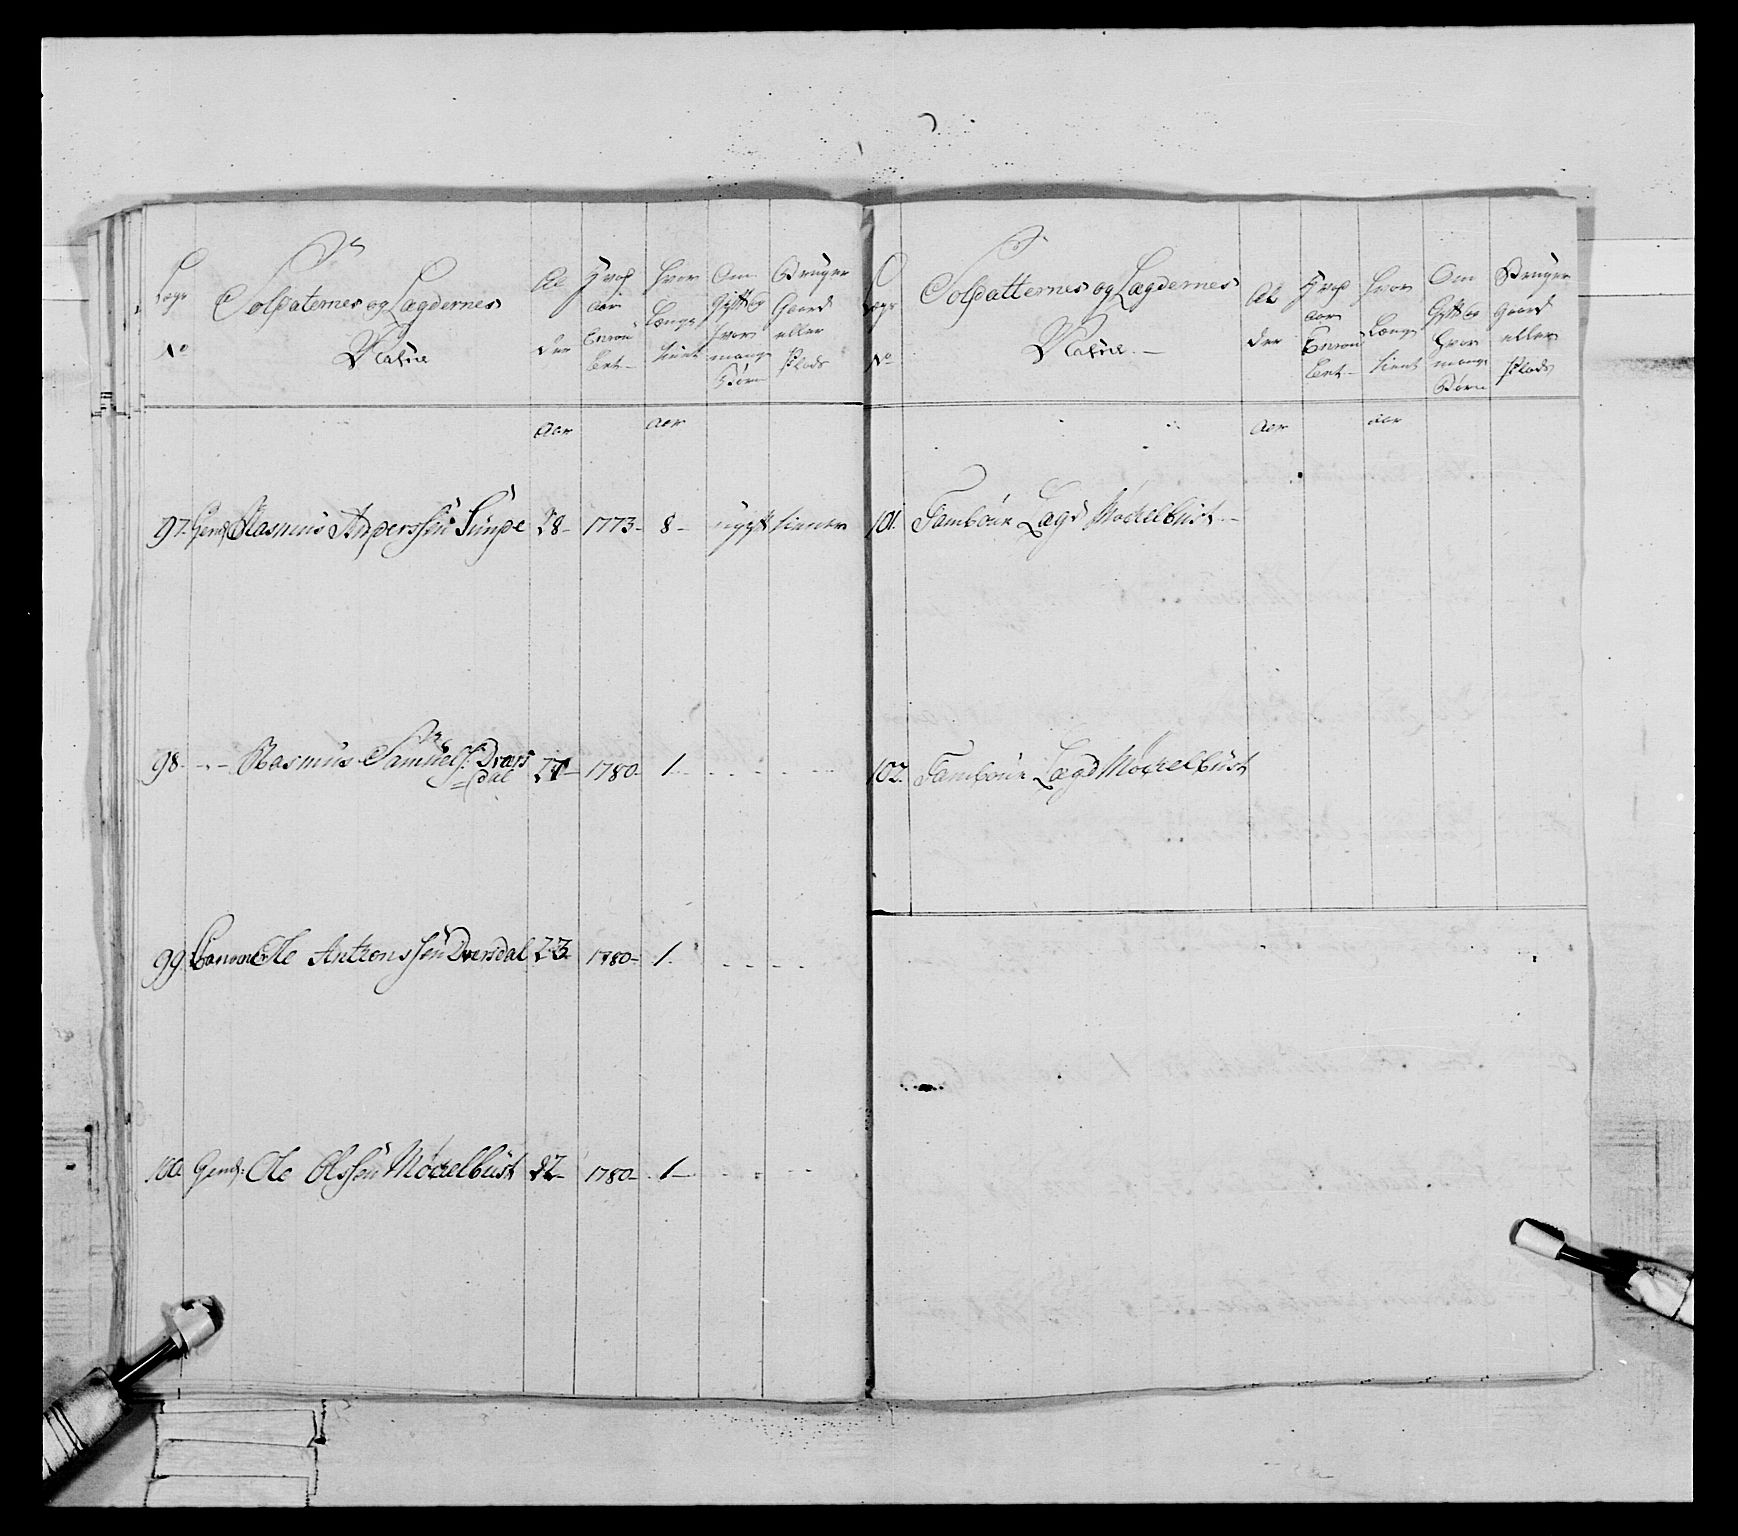 Lægs No
Soldaternes og Lægdernes Nafne
Alder
Hvad aar Enroulleret
Hvor Længe tient
Om Gift og hvor mange Børn
Bruger Gaard eller Plads
Aar
aar
97. Gend Rasmus Anderssen Sunde 28- 1773- 8- ugift tiener
98. - Rasmus Samuels: Dravs
dal 21- 1780- 1-
99. Ole Antonssen Dversdal 23 1780- 1.
100. Gend: Ole Olssen Mockelbust 22- 1780- 1-
Lægs No
Soldatternes og Lægdernes Nafne
Alder
Hvad aar Enroulleret
Hvor Længe tient
Om Gift og hvor mange Børn
Bruger Gaard eller Plads
Aar
aar
101. Tambour Lægd Mockelbust
102. Tambour Lægd Mockelbust